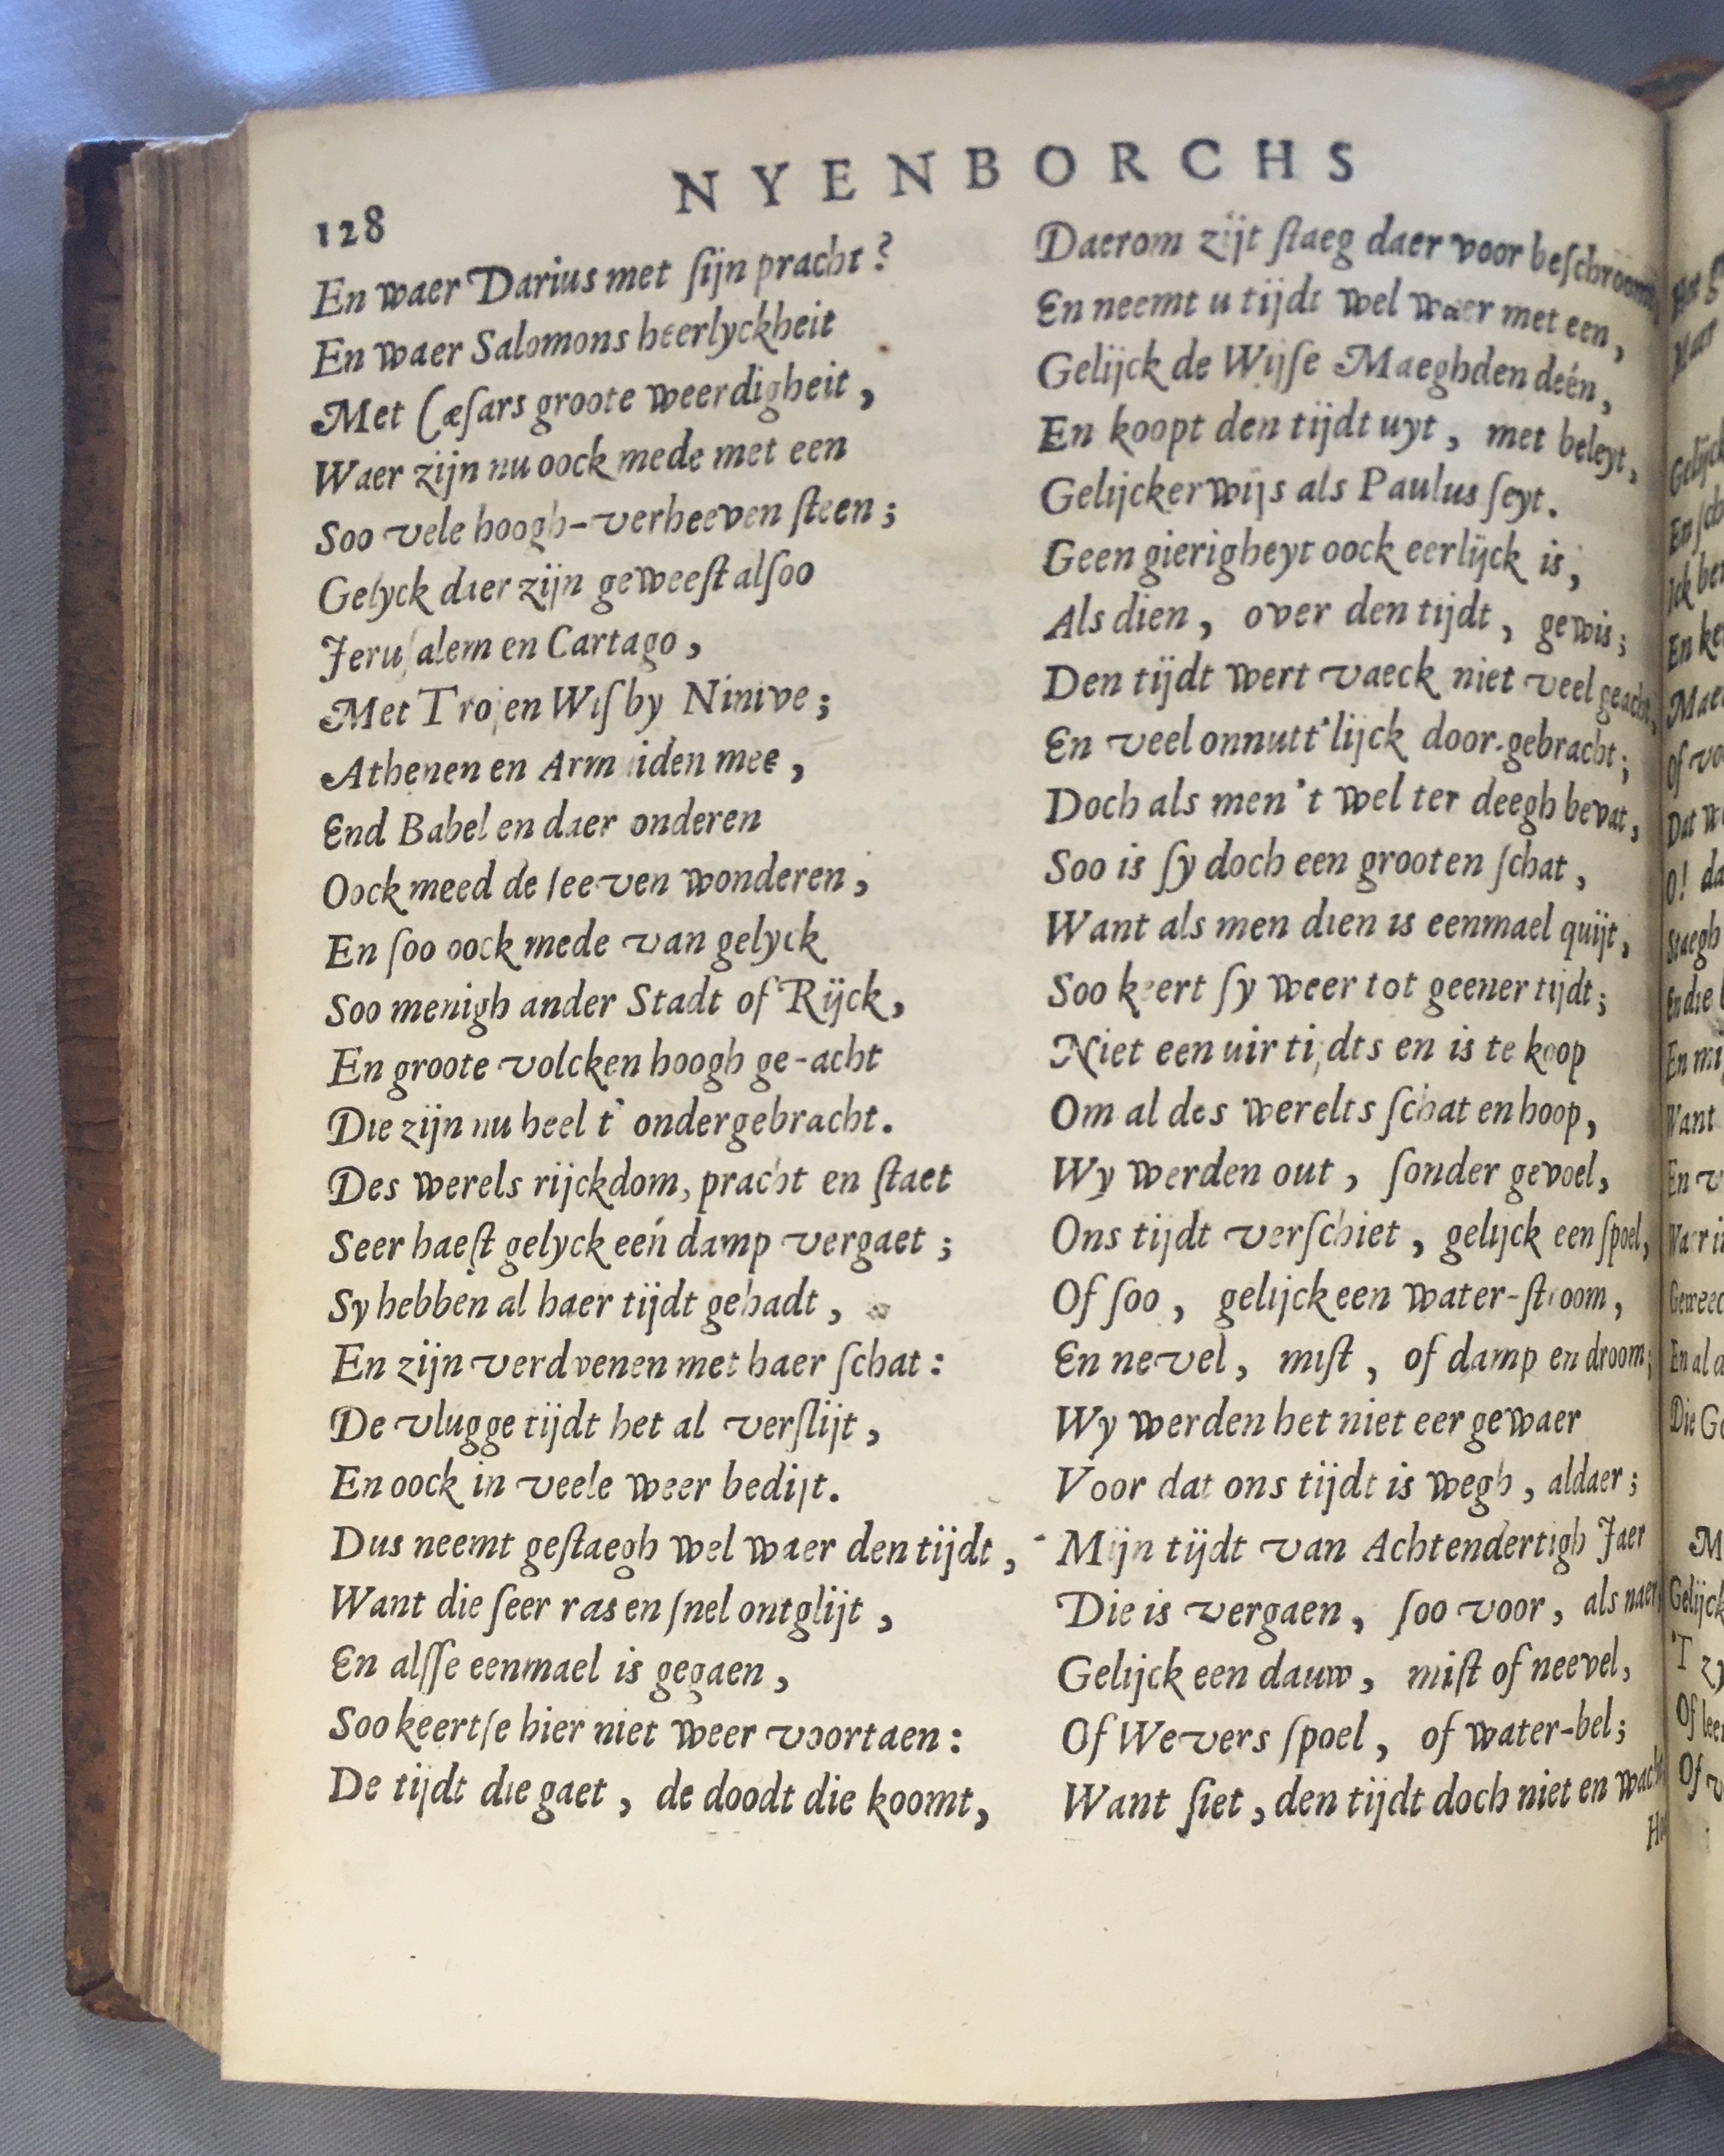 128
NYENBORCHS
En waer Darius met ſijn pracht?
En waer Salomons heerlyckheit
Met Cæſars groote weerdigheit,
Waer zijn nu oock mede met een
Soo vele hoogh-verheeven ſteen;
Gelyck daer zijn geweeſt alſoo
Jeruſalem en Cartago,
Met Trojen Wiſby Ninive;
Athenen en Arm iden mee,
End Babel en daer onderen
Oock meed de ſeeven wonderen,
En ſoo oock mede van gelyck
Soo menigh ander Stadt of Rijck,
En groote volcken hoogh ge-acht
Die zijn nu heel t' ondergebracht.
Des werels rijckdom, pracht en ſtaet
Seer haeſt gelyck eeń damp vergaet;
Sy hebben al haer tijdt gehadt,
En zijn verdvenen met haer ſchat:
De vlugge tijdt het al verſlijt,
En oock in veele weer bedijt.
Dus neemt geſtaegh wel waer den tijdt,
Want die ſeer ras en ſnel ontglijt,
En alſſe eenmael is gegaen,
Soo keertſe hier niet weer voortaen:
De tijdt die gaet, de doodt die koomt,
Daerom zijt ſtaeg daer voor beſchroomt,
En neemt u tijdt wel waer met een,
Gelijck de Wijſe Maeghden deén,
En koopt den tijdt uyt, met beleyt,
Gelijckerwijs als Paulus ſeyt.
Geen gierigheyt oock eerlijck is,
Als dien, over den tijdt, gewis;
Den tijdt wert vaeck niet veel geacht,
En veel onnutt'lijck door-gebracht;
Doch als men't wel ter deegh bevat,
Soo is ſy doch een grooten ſchat,
Want als men dien is eenmael quijt,
Soo keert ſy weer tot geener tijdt;
Niet een uir tijdts en is te koop
Om al des werelts ſchat en hoop,
Wy werden out, ſonder gevoel,
Ons tijdt verſchiet, gelijck een ſpoel,
Of ſoo, gelijck een water-ſtroom,
En nevel, miſt, of damp en droom;
Wy werden het niet eer gewaer
Voor dat ons tijdt is wegh, aldaer;
Mijn tijdt van Achtendertigh Jaer
Die is vergaen, ſoo voor, als naer,
Gelijck een dauw, miſt of neevel,
Of Wevers ſpoel, of water-bel;
Want ſiet, den tijdt doch niet en wacht